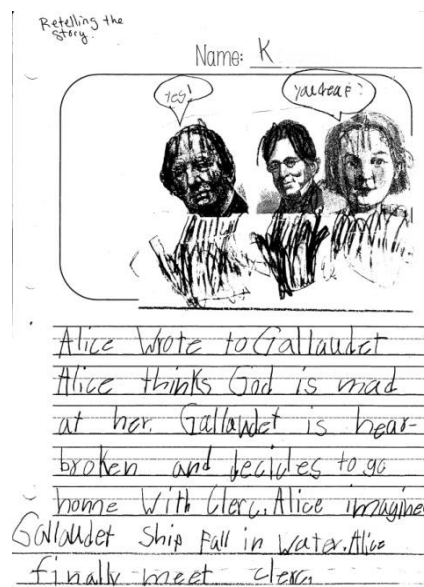 Retelling the
story.
Name: K
Yes!
You deaf?
Alice Wrote to Gallaudet
Alice thinks God is mad
at her. Gallaudet is hear-
broken and decides to go
home With Clerc. Alice imagine
Gallaudet Ship Fall in Water. Alice
finally meet Clerc